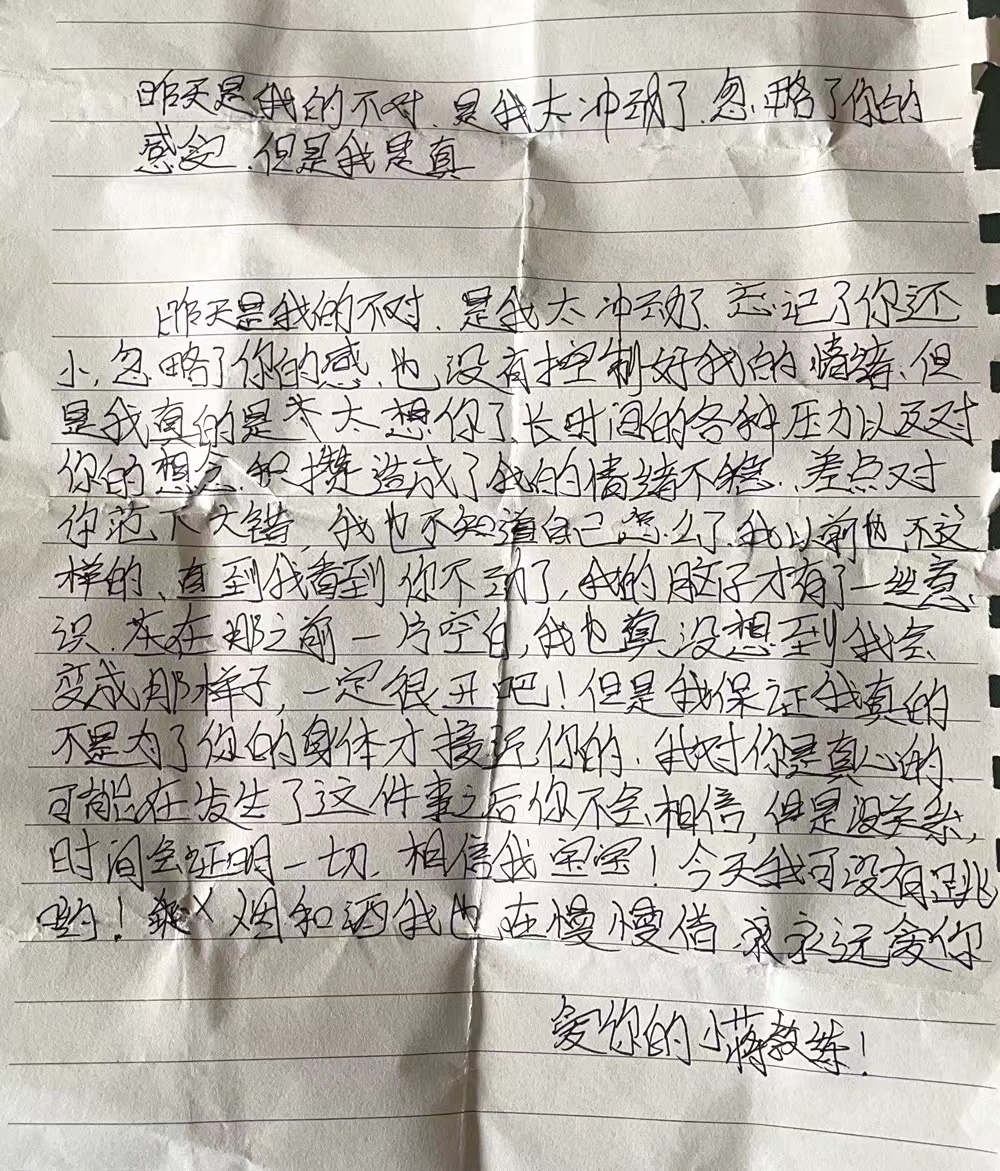 昨天是我的不对、是我太冲动了、忽略了你的
感受、但是我是真
昨天是我的不对、是我太冲动了、忘记了你还
小、忽略了你的感、也没有控制好我的情绪、但
是我真的是太想你了长时间的各种压力以及对
你的想念积攒造成了我的情绪不稳、差点对
你范下大错、我也不知道自己怎么了、我以前也不这
样的、直到我看到你不动了,我的脑子才有了一丝意
识、在那之前一片空白,我也真没想到我会
变成那样子,一定很丑吧!但是我保证我真的
不是为了你的身体才接近你的、我对你是真心的、
可能在发生了这件事之后你不会相信,但是没关系,
时间会证明一切、相信我宝宝!今天我可没有跳
哟!烟和酒我也在慢慢借、我永远爱你
爱你的小蒋教练!